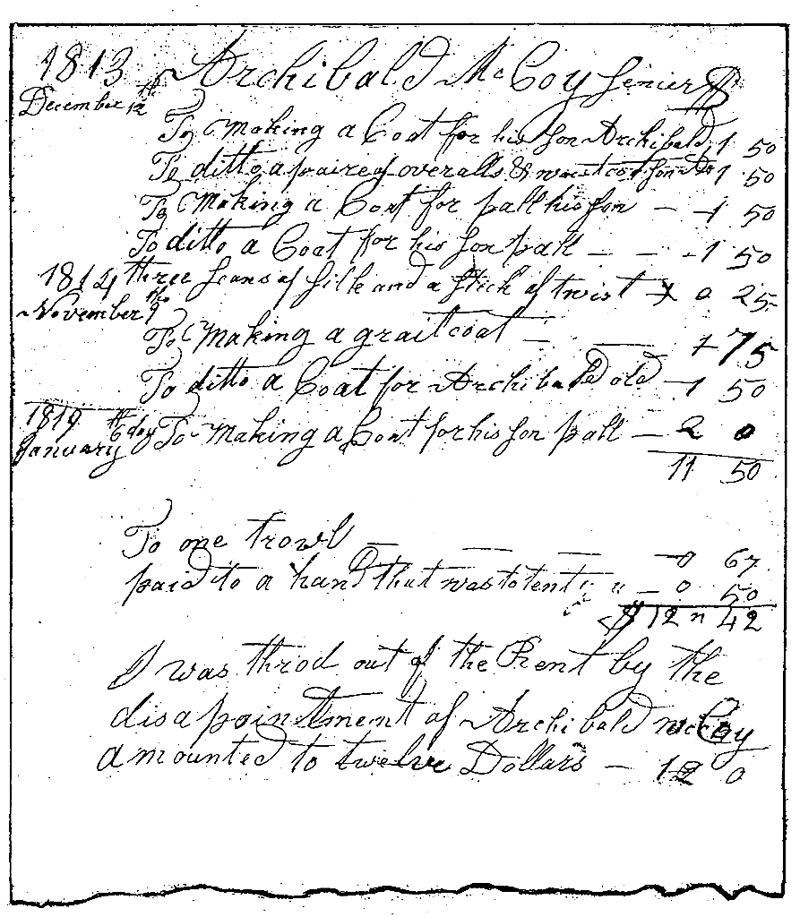 1813 Archibald McCoy senier $
December 12th
To Making a Coat for his son Archibald 1 50
To ditto a paire of overalls & wastcoat for Do 1 50
To Making a Coat for pall his son — 1 50
To ditto a Coat for his son pall — — 1 50
1814 three scans of silk and a stick of twist 0 25
November 9th
To Making a graitcoat — — 1 75
To ditto a Coat for Archibald old 1 50
1819
January 6th day To Making a Coat for his son pall — 2 0
11 50
To one trowl — — — 0 67
paid to a hand that was to tent " " — 0 50
$ 12 " 42
I was throd out of the Rent by the
disapointment of Archibald McCoy
amounted to twelve Dollars — 12 0